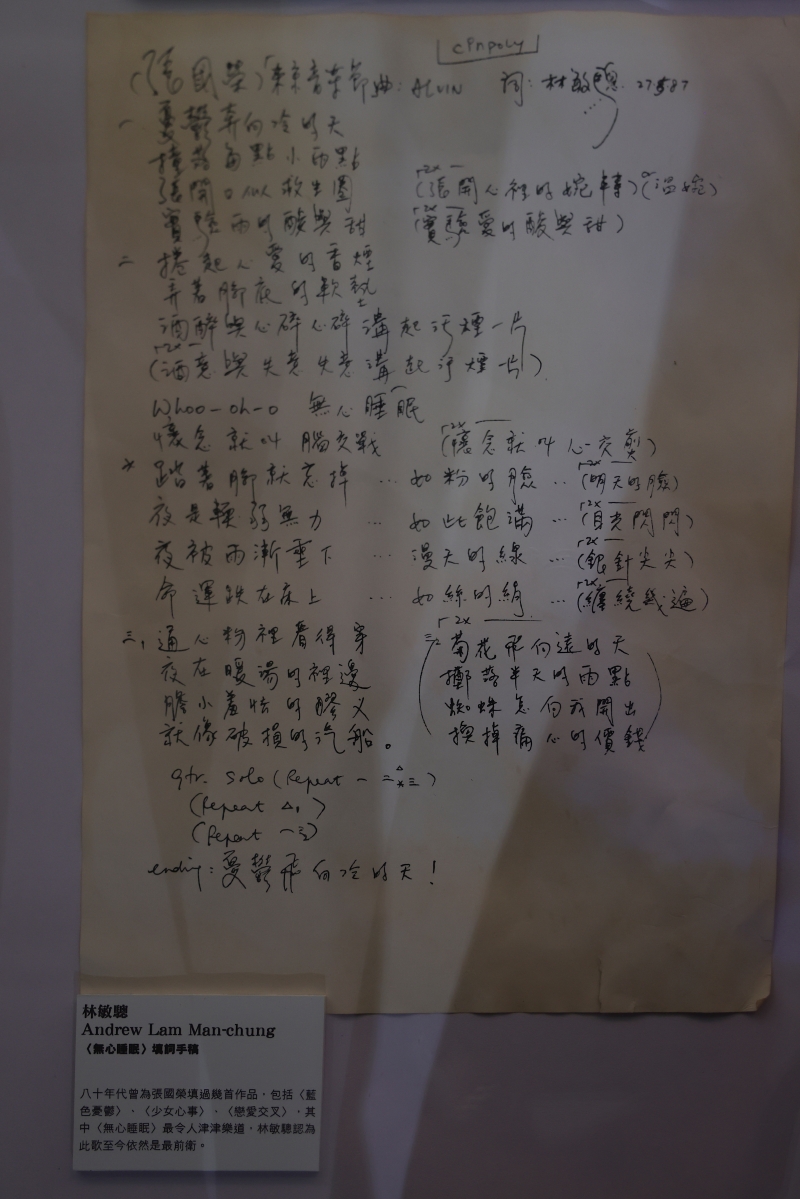 CAPAPOLY
(張國榮)「東京音樂節」曲: ALVIN 詞: 林敏聰 27587
一 憂鬱奔向冷的天
撞落每點小雨點
張開口似救生圈 (張開心裡的婉轉) (溫婉)
實驗雨的酸與甜 (實驗愛的酸與甜)
二 捲起心愛的香煙
弄著腳底的軟墊
酒醉與心碎心碎溝起污煙一片
(酒意與失意失意溝起污煙一片)
Whoo-oh-o 無心睡眠
懷念就叫腦交戰 (懷念就叫心交戰)
* 踏著腳就忘掉 … 如粉的臉 … (明天的臉)
夜是輭弱無力 … 如此飽滿 … (目光閃閃)
夜被雨漸垂下 … 漫天的線 … (銀針尖尖)
命運跌在床上 … 如絲的絹 … (纏繞幾遍)
三, 通心粉裡看得穿
夜在暖湯的裡邊
膽小羞怯的膠叉
就像破損的汽船。
三2 菊花飛向遠的天
擲落半天的雨點
蜘蛛怎向我開出
換掉痛心的價錢
gtr. solo (Repeat 一 二 * 三)
(Repeat △,)
(Repeat 一 三2)
ending: 憂鬱飛向冷的天!
林敏聰
Andrew Lam Man-chung
〈無心睡眠〉填詞手稿
八十年代曾為張國榮填過幾首作品，包括〈藍
色憂鬱〉、〈少女心事〉、〈戀愛交叉〉，其
中〈無心睡眠〉最令人津津樂道，林敏聰認為
此歌至今依然是最前衛。